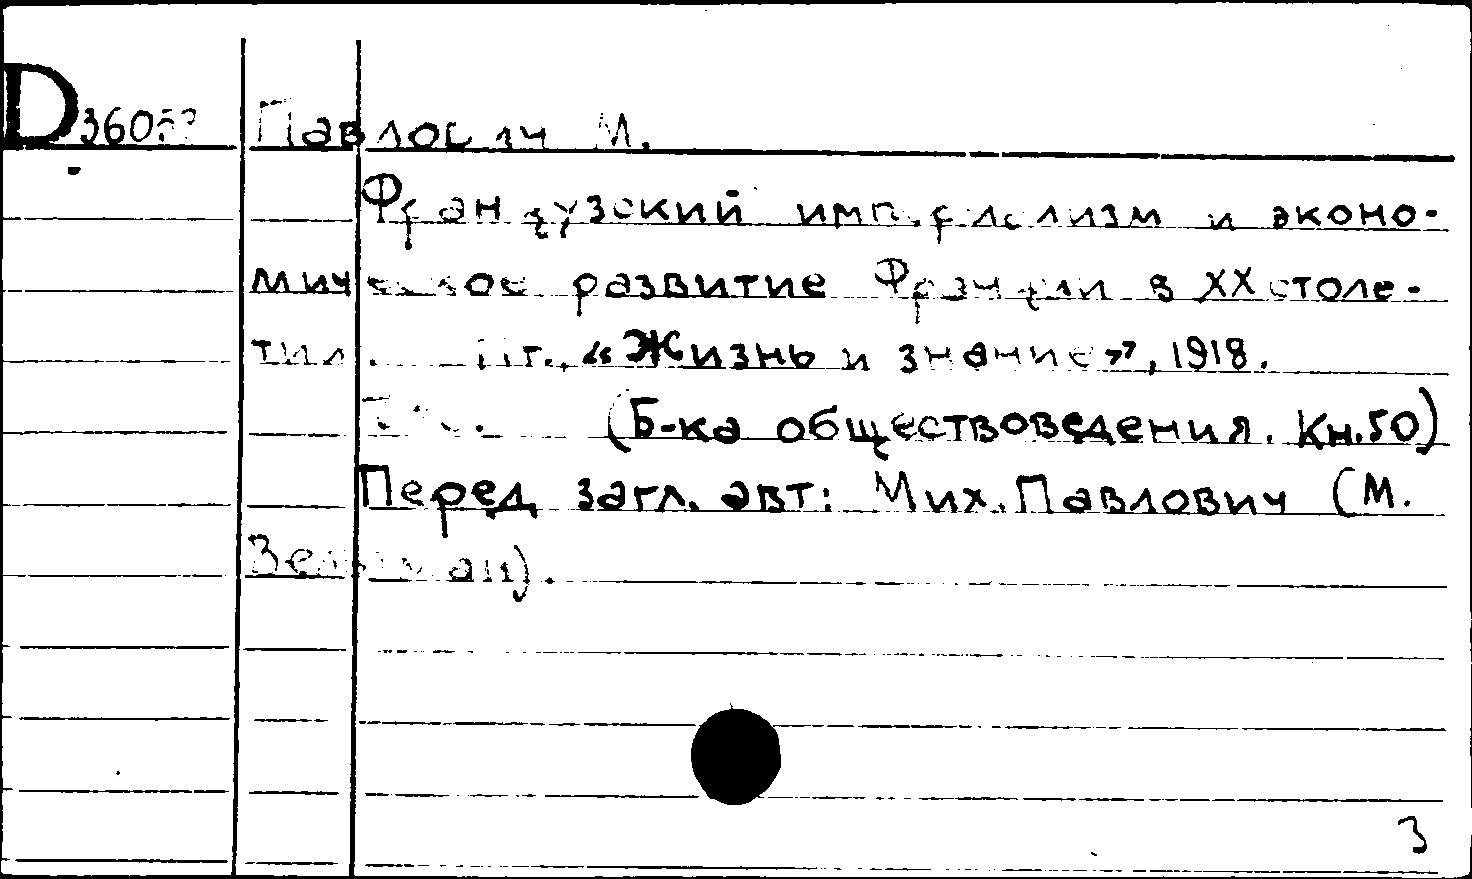 Павлович М.
Французский империализм и эконо-
мическое развитие Франции в XX столе-
тии. Пг., «Жизнь и знание», 1918.
(Б-ка обществоведения. Кн. 50)
Перед загл. авт: Мих. Павлович (М.
Вельтман).
3